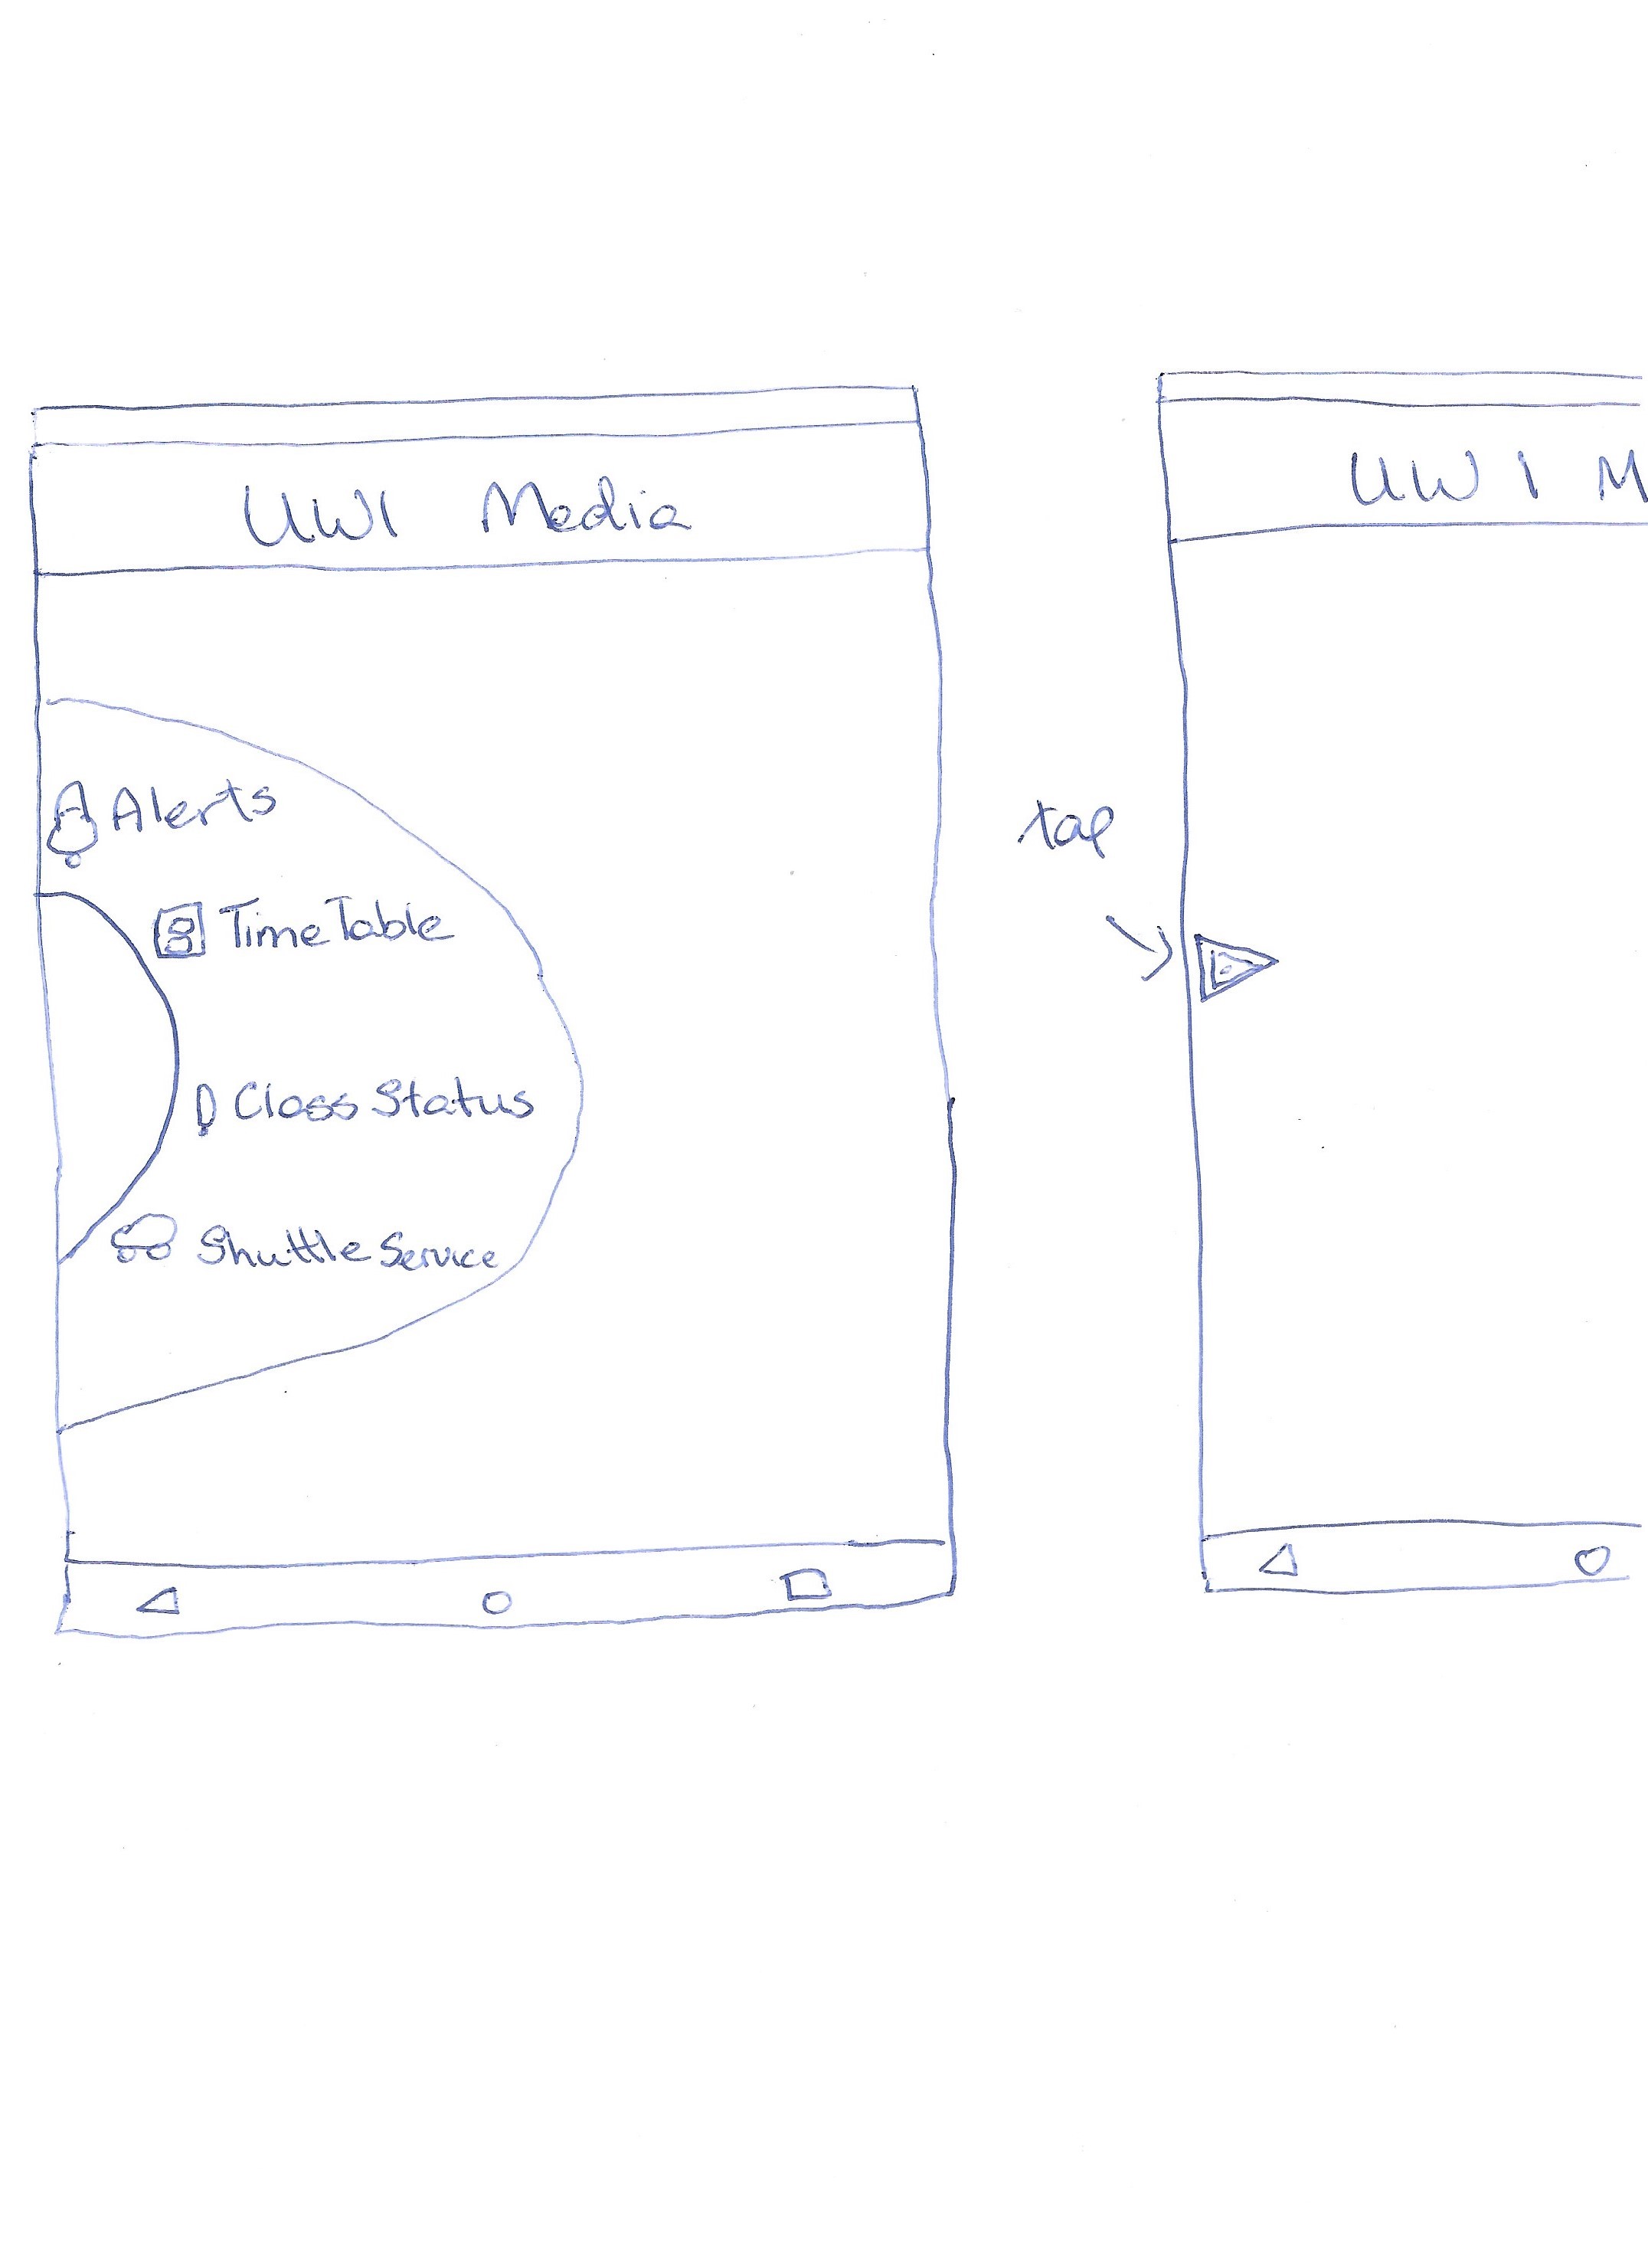 UWI Media
Alerts
TimeTable
Class Status
Shuttle Service
tap
UWI M